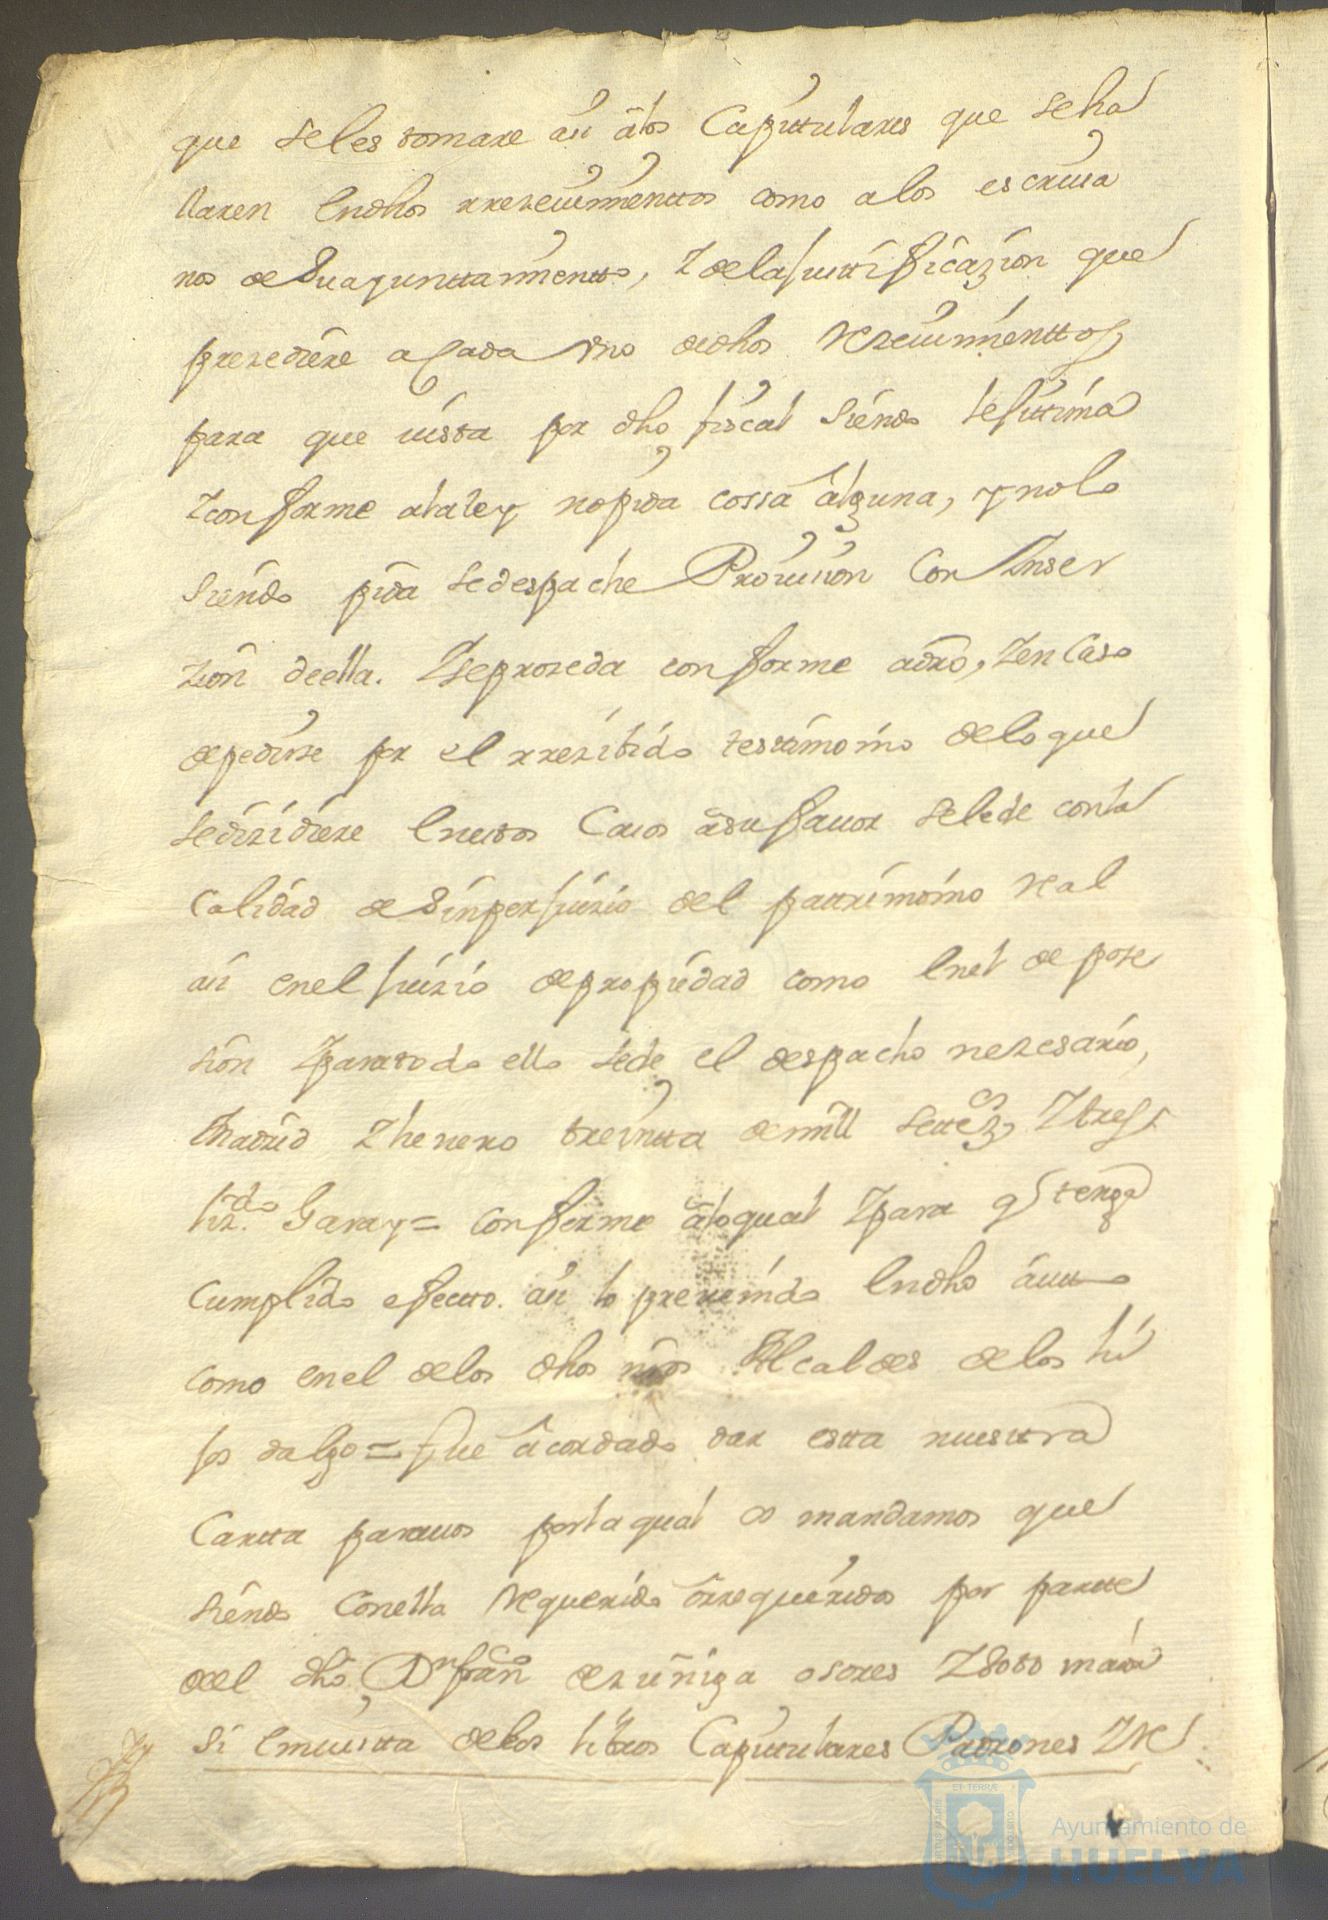 que se les tomare asi a los Capitulares que se ha
llaren En dhos rrezeuimienttos como a los escriua
nos de Su ayunttamientto, Y de la justtificazion que
prezediere a Cada Vno de dhos Rezeuimienttos
para que uista por dho fiscal siendo lejitima
Y conforme a la ley no pida cossa alguna, y no lo
siendo pida se despache Prouision Con Inser
zion de ella. Y se prozeda conforme a dro, Y en Caso
de pedirse por el rrezibido testimonio de lo que
se dizidiere En estos Casos a su fauor se le de con la
Calidad de Sin perjuizio del patrimonio Real
asi en el juizio de propiedad como En el de pose
sion Y para todo ello se de el despacho nezesario,
Madrid Y henero treintta de mill settezs Y tres
lizdo Garay = Conforme a lo qual Y para q tenga
Cumplido efectto. asi lo preuenido En dho autto
como en el de los dhos nros Alcaldes de los hi
jos dalgo = fue acordado dar estta nuestra
Cartta para uos por la qual os mandamos que
siendo Con ella Requerido o rrequeridos por partte
del dho Dn fran de zuñiga osores Y Soto maior
Si En uistta de los libros Capitulares Padrones Y Re
Ayuntamiento de
HUELVA